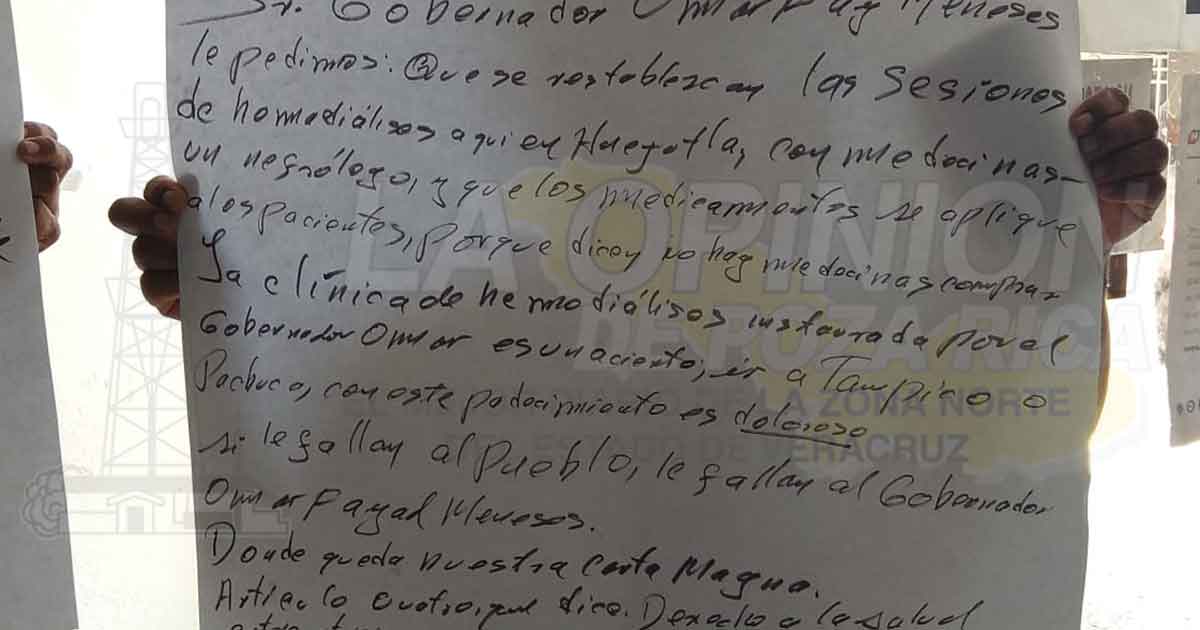 Sr. Gobernador Omar Fayad Meneses
le pedimos: Que se restablezcan las Sesiones
de hemodiálisos aqui en Huejutla, con medecinas-
un nefrólogo, y que los medicamentos se aplique
a los pacientes, porque dicen no hay medecinas compran
La clínica de hemodiálisos instaurada por el
Gobernador Omar es un aciento; ir a Tampico o
Pachuca, con este padecimiento es doloroso
si le fallan al Pueblo, le fallan al Gobernador
Omar Fayad Meneses.
Donde queda nuestra Carta Magna.
Articulo cuatro, que dice. Derecho a la salud
LA OPINION
DE POZA RICA
DE LA ZONA NORTE
ESTADO DE VERACRUZ